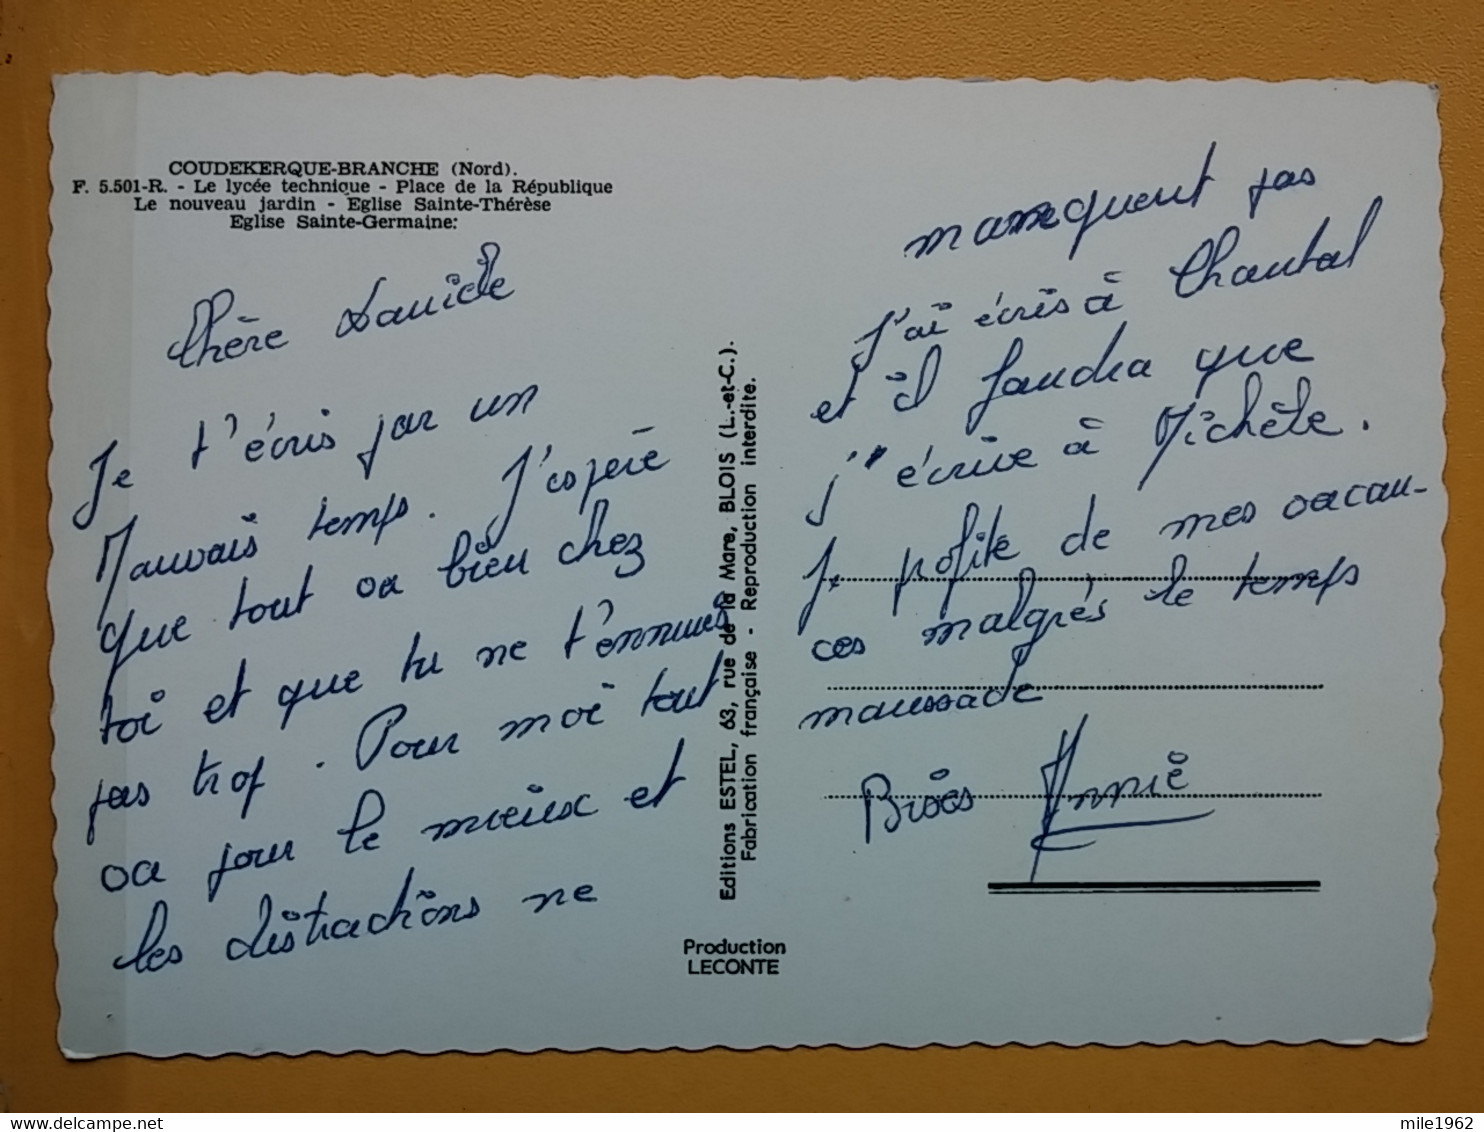 COUDEKERQUE-BRANCHE (Nord).
F. 5.501-R. - Le lycée technique - Place de la République
Le nouveau jardin - Eglise Sainte-Thérèse
Eglise Sainte-Germaine:
Chère Danièle
Je t'écris par un
Mauvais temps. J'espère
que tout va bien chez
toi et que tu ne t'ennuies
pas trop. Pour moi tout
va pour le mieux et
les distractions ne
Editions ESTEL, 63, rue de la Mare, BLOIS (L.-et-C.).
Fabrication française - Reproduction interdite.
Production
LECONTE
manquent pas
J'ai écris à Chantal
et il faudra que
j'écrive à Michèle.
Je profite de mes vacan-
ces malgrés le temps
maussade
Bises Annie
mile1962